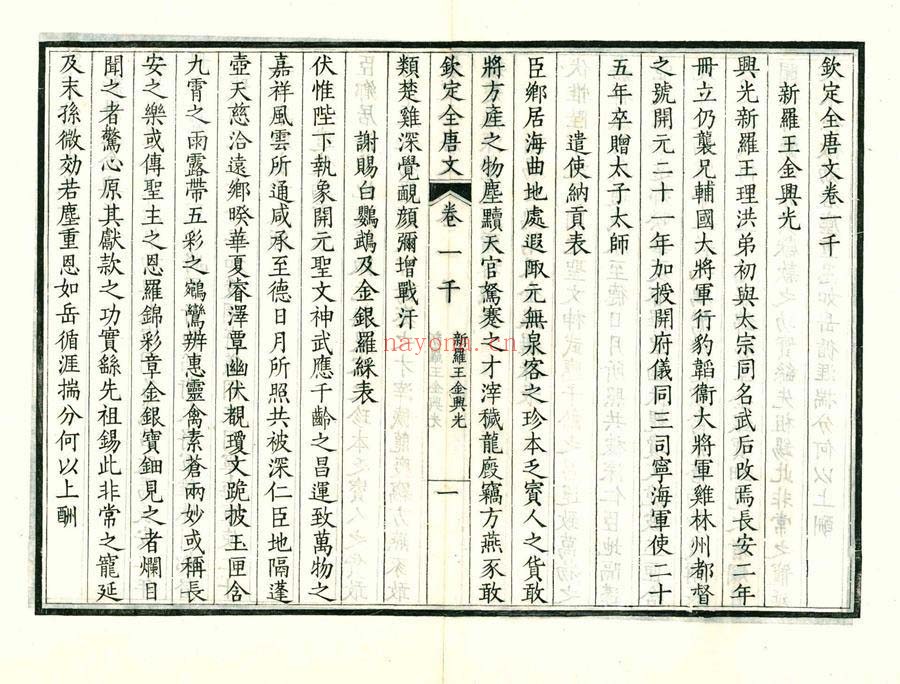 欽定全唐文卷一千
新羅王金興光
興光新羅王理洪弟初與太宗同名武后改焉長安二年
冊立仍襲兄輔國大將軍行豹韜衞大將軍雞林州都督
之號開元二十一年加授開府儀同三司寧海軍使二十
五年卒贈太子太師
遣使納貢表
臣鄉居海曲地處遐陬元無泉客之珍本乏賓人之貨敢
將方產之物塵黷天官駑蹇之才滓穢龍廄竊方燕豕敢
欽定全唐文
卷一千
新羅王金興光
一
類楚雞深覺靦顏彌增戰汗
謝賜白鸚鵡及金銀羅綵表
伏惟陛下執象開元聖文神武應千齡之昌運致萬物之
嘉祥風雲所通咸承至德日月所照共被深仁臣地隔蓬
壺天慈洽遠鄉暌華夏睿澤覃幽伏覩瓊文跪披玉匣含
九霄之雨露帶五彩之鵷鸞辨惠靈禽素蒼兩妙或稱長
安之樂或傳聖主之恩羅錦彩章金銀寶鈿見之者爛目
聞之者驚心原其獻款之功實繇先祖錫此非常之寵延
及末孫微効若塵重恩如岳循涯揣分何以上酬
nayona.cn